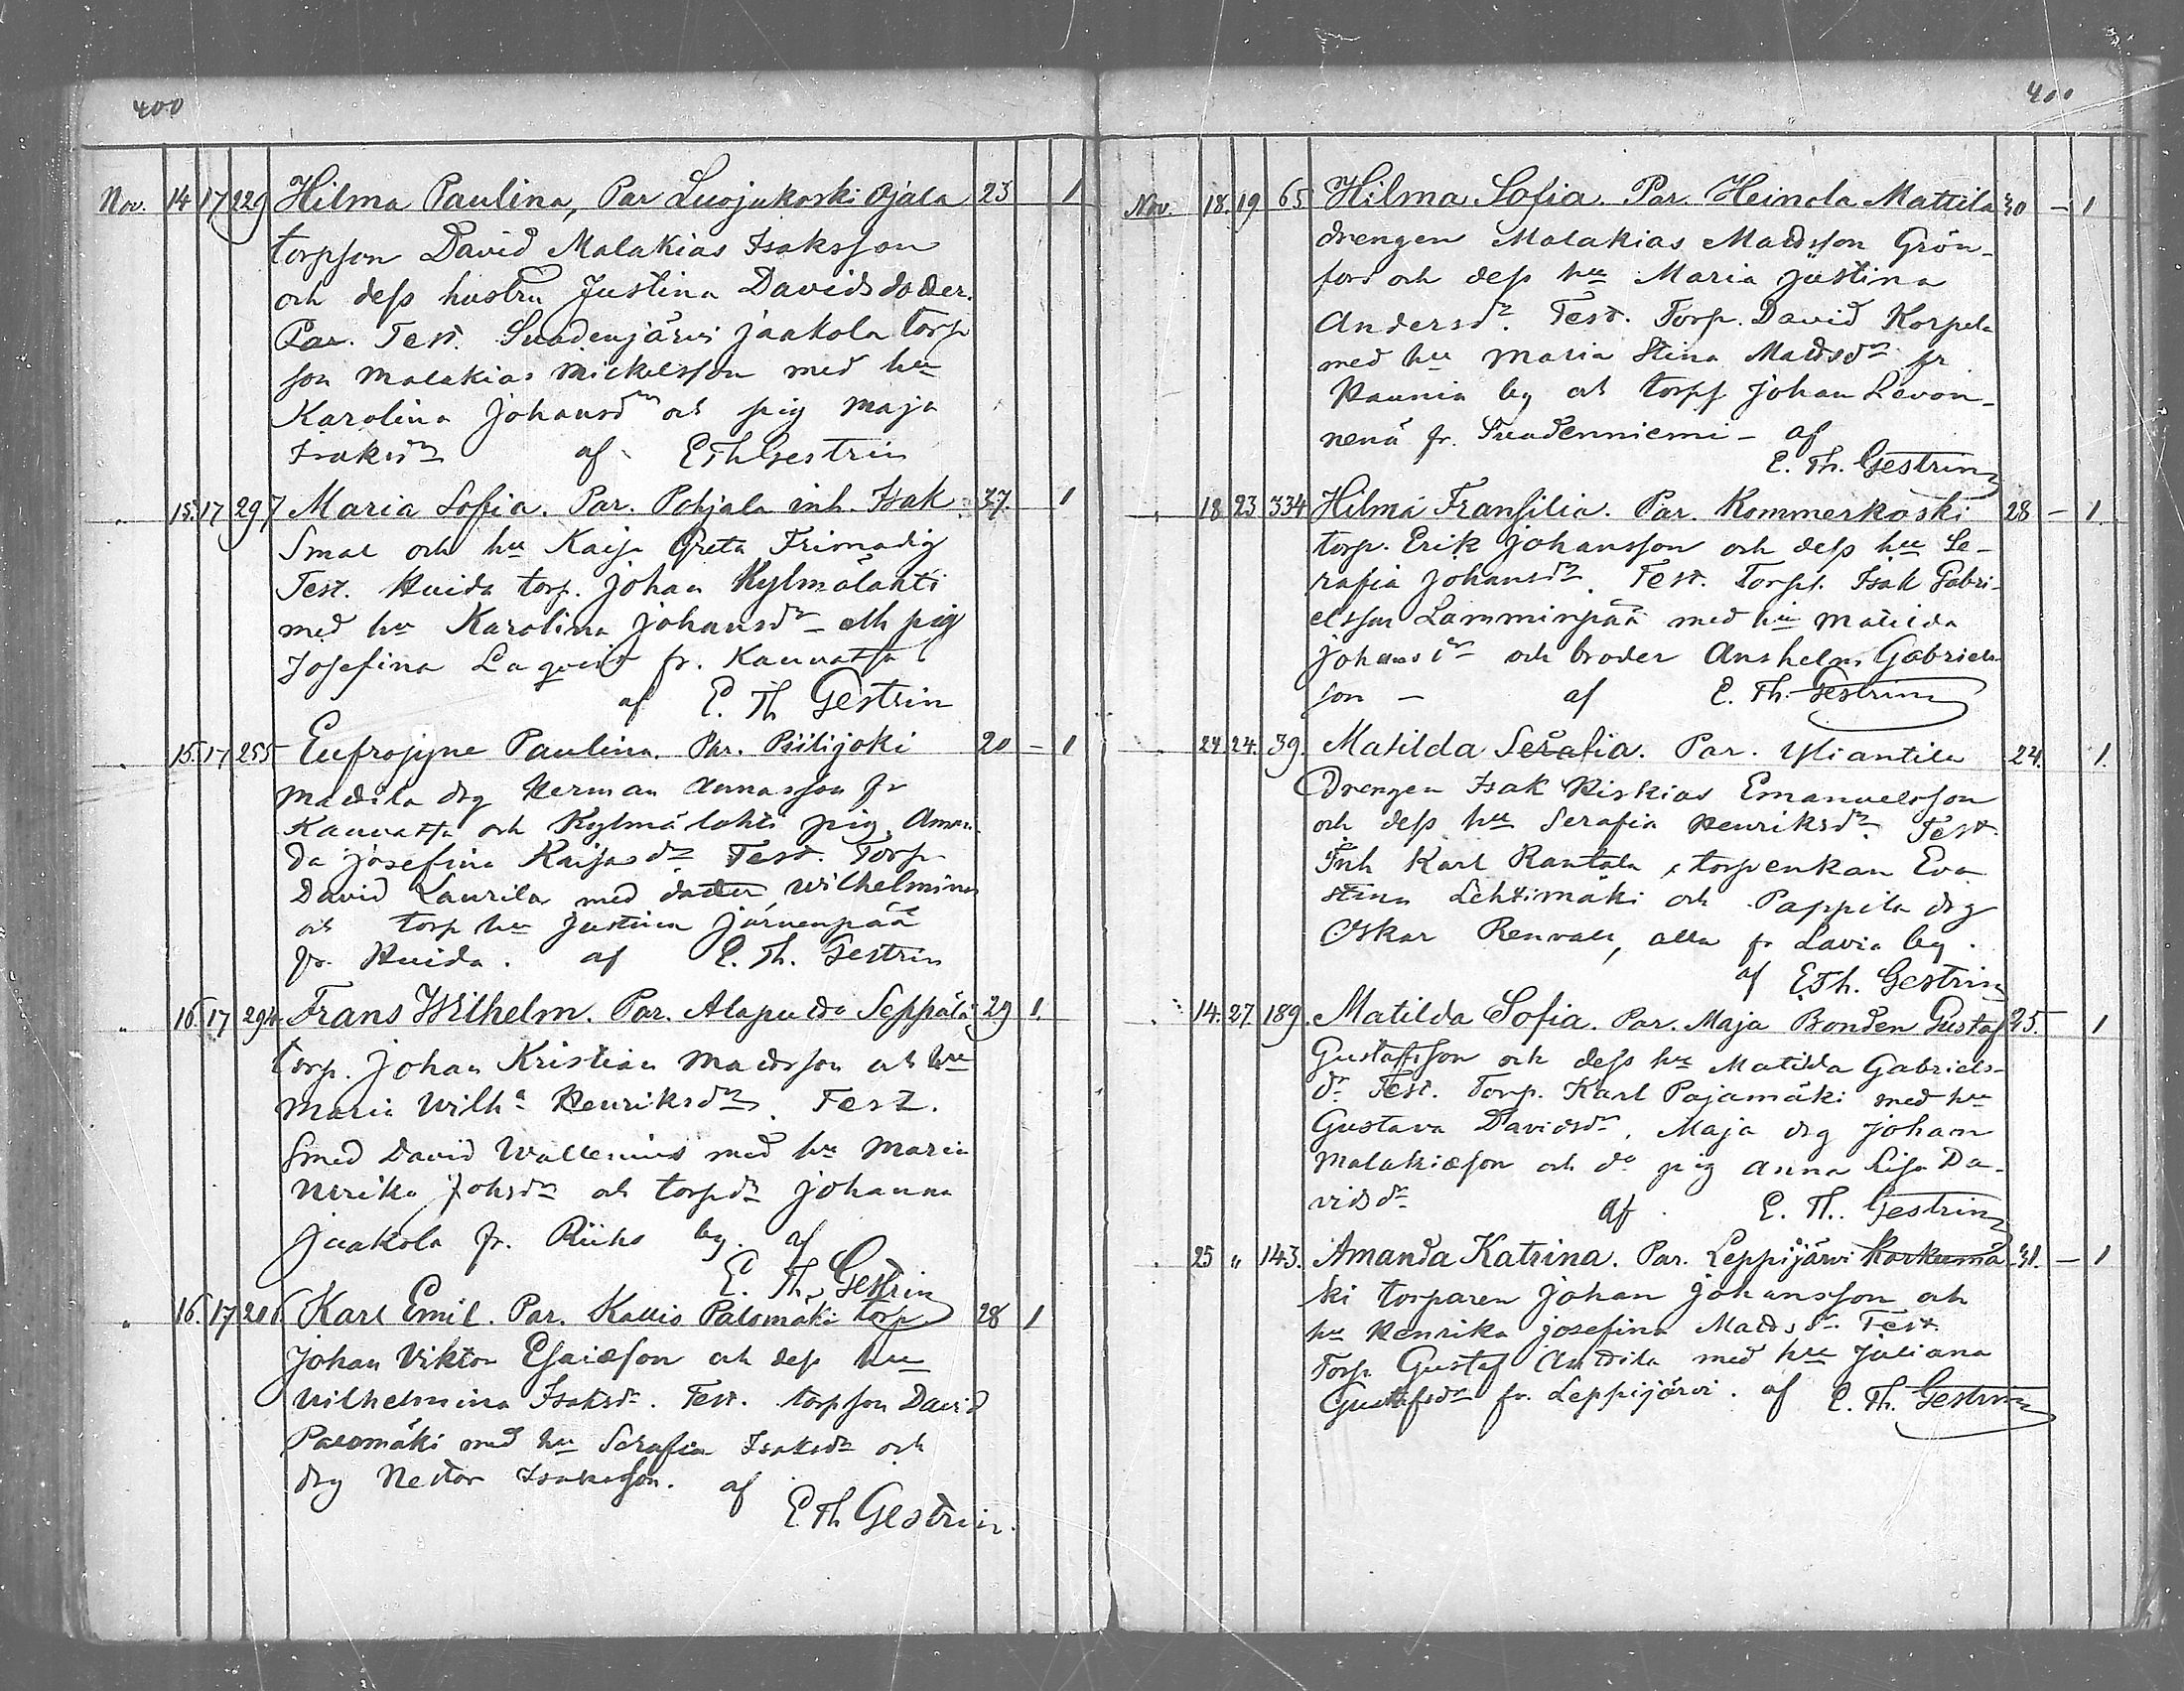 400
Nov. 14 17 229 Hilma Paulina, Par Luojukoski Ojala 23 1
torpson David Malakias Isaksson
och dess hustru Justina Davidsdotter.
Par. Test. Suodenjärvi Jaakola torp
son Malakias Mickelsson med hu
Karolina Johansdr och pig Maja
Isaksdr af E Th Gestrin
" 15. 17 297 Maria Sofia. Par. Pohjala inh. Isak 37. 1
Smal och hu Kaisa Greta Frimodig
Test. Huida torp. Johan Kylmälahti
med hu Karolina Johansdr och pig
Josefina Laqvist fr. Kauvatsa
af E. Th Gestrin
" 15. 17 255 Eufrosyne Paulina. Par. Piilijoki 20 – 1
Mattila drg Herman Annasson fr
Kauvatsa och Kylmälahti pig. Aman-
da Josefina Kaisasdr Test. Torp
David Laurila med dotter Wilhelmina
och torp hu Justina Järvenpää
fr. Huida. af E. Th. Gestrin
" 16. 17 294 Frans Wilhelm. Par. Alapulda Seppälä 29 1.
torp. Johan Kristian Mattsson och hu
Maria Wilha Henriksdr. Test.
Smed David Wallenius med hu Maria
Ulrika Johsdr och torpdr Johanna
Jaakola fr. Riiho by. af
E. Th. Gestrin
" 16. 17 206 Karl Emil. Par. Kallio Palomäki torp. 28 1
Johan Viktor Esaiæson och dess hu
Wilhelmina Isaksdr. Test. torpson David
Palomäki med hu Serafia Isaksdr och
drg Nestor Isaksson. af
E. Th Gestrin.
400
Nov. 18. 19 65 Hilma Sofia. Par. Heinola Mattila 30 – 1
drengen Malakias Mattsson Grön-
fors och dess hu Maria Justina
Andersdr. Test. Torp. David Korpela
med hu Maria Stina Mattsdr fr
Haunia by och torps Johan Levon-
nenä fr. Suodenniemi – af
E. Th. Gestrin
" 18 23 334 Hilma Fransilia. Par. Kommerkoski 28 – 1.
torp. Erik Johansson och dess hu Se-
rafia Johansdr. Test. Torps. Isak Gabri-
elsson Lamminpää med hu Matilda
Johansdr och broder Anshelm Gabriels-
son – af E. Th. Gestrin
" 24. 39. Matilda Serafia. Par. Yliantila 24. 1.
Drengen Isak Kiskias Emanuelsson
och dess hu Serafia Henriksdr. Test.
Inh Karl Rantala, torpenkan Eva
Stina Lehtimäki och Pappila drg
Oskar Renvall, alla fr Lavia by.
af E. Th. Gestrin
" 14. 27. 189. Matilda Sofia. Par. Maja Bonden Gustaf 25. 1
Gustafsson och dess hu Matilda Gabriels-
dr Test. Torp. Karl Pajamäki med hu
Gustava Davidsdr, Maja drg Johan
Malakiæson och do pig Anna Lisa Da-
vidsdr af E. Th. Gestrin
" 25 " 143. Amanda Katrina. Par. Leppijärvi Korkeemä- 31. – 1
ki torparen Johan Johansson och
hu Henrika Josefina Mattsdr Test
Torp Gustaf Anttila med hu Juliana
Gustafsdr fr. Leppijärvi. af E. Th. Gestrin